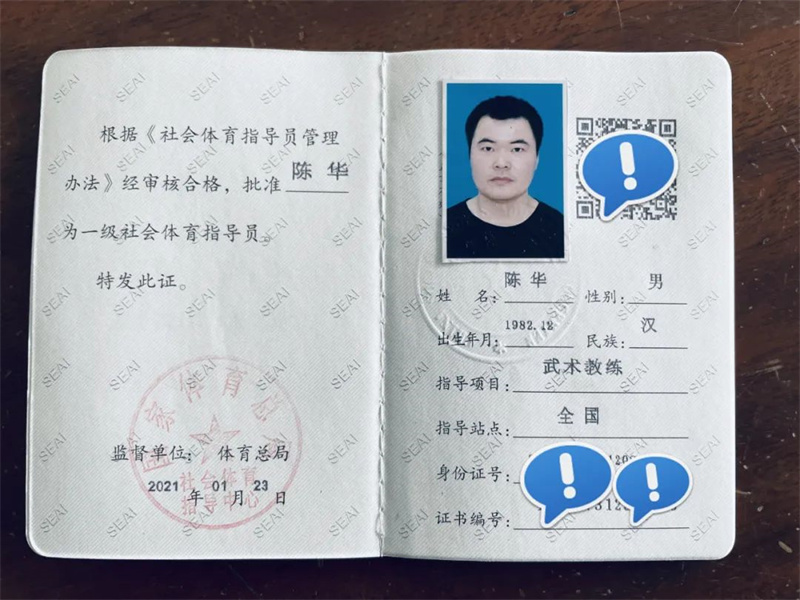 根据《社会体育指导员管理
办法》经审核合格，批准 陈 华
为一级社会体育指导员。
特发此证。
国家体育总局
社会体育
指导中心
监督单位： 体育总局
2021 年 01 月 23 日
姓 名： 陈 华 性别： 男
出生年月： 1982.12 民族： 汉
指导项目： 武术教练
指导站点： 全 国
身份证号：
证书编号：
SEAI